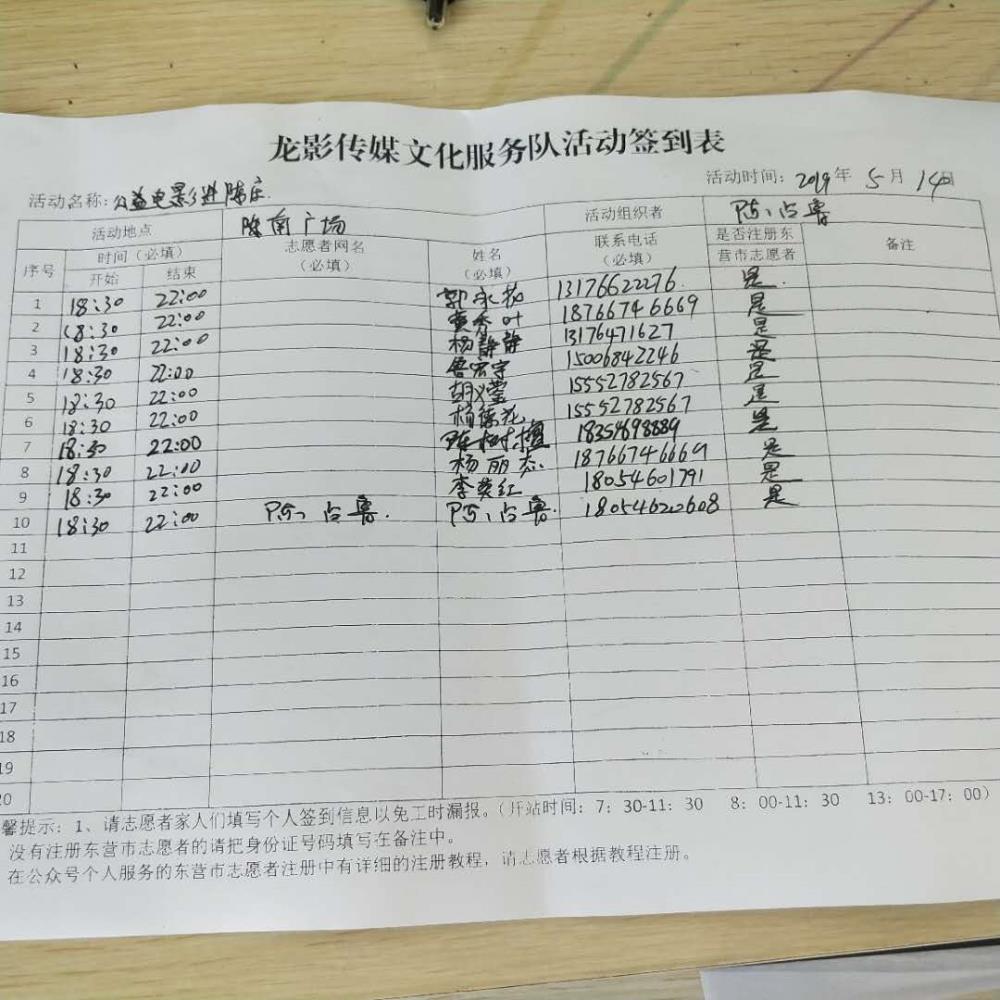 龙影传媒文化服务队活动签到表
活动名称：公益电影进陈庄 活动时间：2019年 5月 14日
活动地点 陈南广场 活动组织者 陈占鲁
序号 时间（必填） 志愿者网名（必填） 姓名（必填） 联系电话（必填） 是否注册东营市志愿者 备注
开始 结束
1 18:30 22:00 郭永花 13176622276 是
2 18:30 22:00 黄秀叶 18766746669 是
3 18:30 22:00 杨静静 13176471627 是
4 18:30 22:00 鲁宏宇 15006842246 是
5 18:30 22:00 胡义莹 15552782567 是
6 18:30 22:00 杨德花 15552782567 是
7 18:30 22:00 陈树 18354698889 是
8 18:30 22:00 杨丽 18766746669 是
9 18:30 22:00 李英红 18054601791 是
10 18:30 22:00 陈占鲁 陈占鲁 18054620608 是
11
12
13
14
15
16
17
18
19
20
馨提示：1、请志愿者家人们填写个人签到信息以免工时漏报。（开站时间：7：30-11：30 8：00-11：30 13：00-17：00）
没有注册东营市志愿者的请把身份证号码填写在备注中。
在公众号个人服务的东营市志愿者注册中有详细的注册教程，请志愿者根据教程注册。